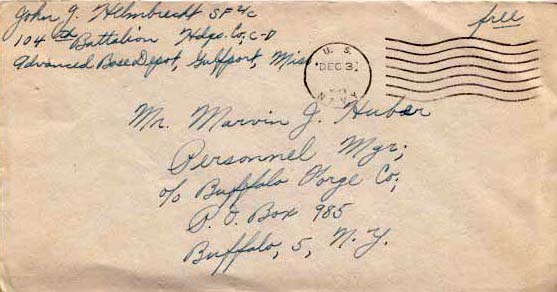 John J. Helmbrecht SF 2/c
free
104th Battalion Hdqs. Co, C-D
Advanced Base Depot, Gulfport, Miss
U. S.
DEC 31
NAVY
Mr. Marvin J. Huber
Personnel Mgr;
c/o Buffalo Forge Co;
P. O. Box 985
Buffalo, 5, N. Y.